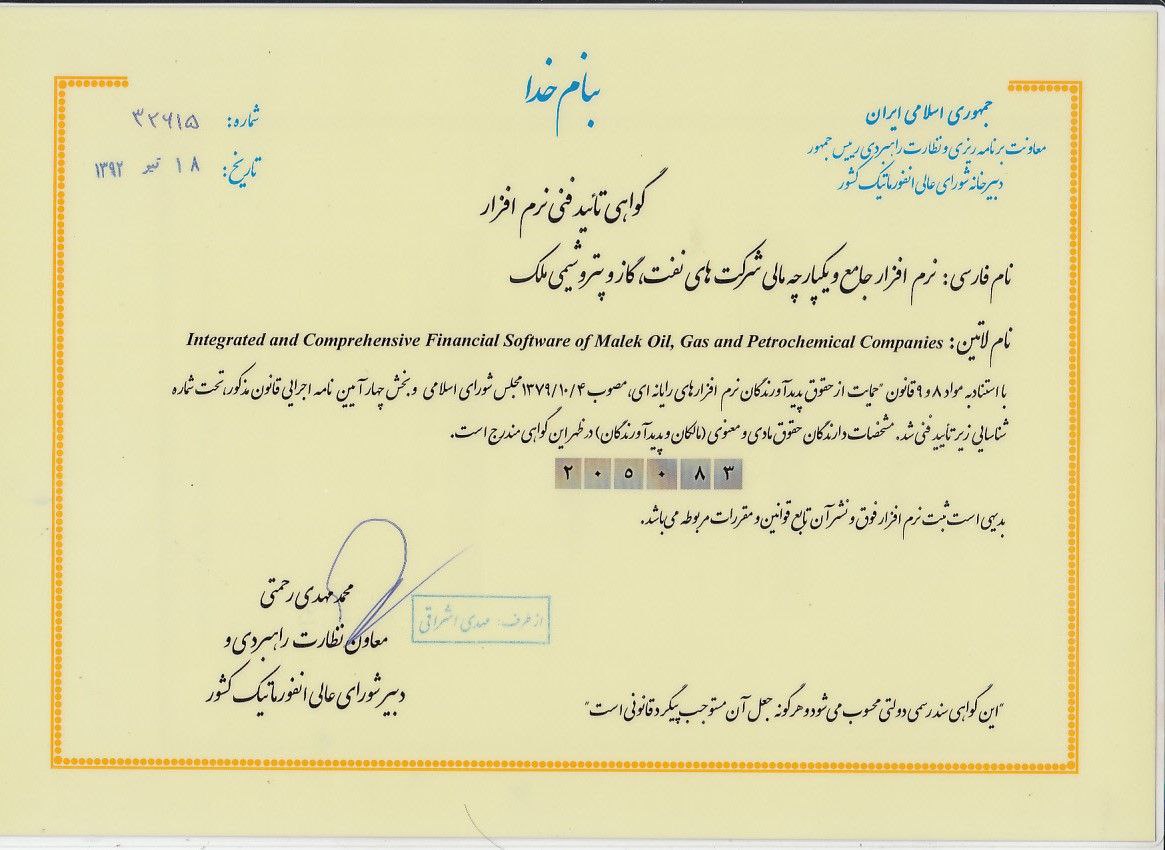 بنام خدا
جمهوری اسلامی ایران
معاونت برنامه ریزی و نظارت راهبردی رییس جمهور
دبیرخانه شورای عالی انفورماتیک کشور
شماره: ۳۲۶۱۵
تاریخ: ۱۸ تیر ۱۳۹۲
گواهی تائید فنی نرم افزار
نام فارسی: نرم افزار جامع و یکپارچه مالی شرکت های نفت، گاز و پتروشیمی ملک
نام لاتین: Integrated and Comprehensive Financial Software of Malek Oil, Gas and Petrochemical Companies
با استناد به مواد ۸ و ۹ قانون "حمایت از حقوق پدیدآورندگان نرم افزارهای رایانه ای، مصوب ۱۳۷۹/۱۰/۴ مجلس شورای اسلامی و بخش چهار آیین نامه اجرایی قانون مذکور، تحت شماره
شناسایی زیر تأیید فنی شد. مشخصات دارندگان حقوق مادی و معنوی (مالکان و پدیدآورندگان) در ظهر این گواهی مندرج است.
۲۰۵۰۸۳
بدیهی است ثبت نرم افزار فوق و نشر آن تابع قوانین و مقررات مربوطه می باشد.
محمد مهدی رحمتی
از طرف: مهدی اشراقی
معاون نظارت راهبردی و
دبیر شورای عالی انفورماتیک کشور
"این گواهی سند رسمی دولتی محسوب می شود و هرگونه جعل آن مستوجب پیگرد قانونی است"